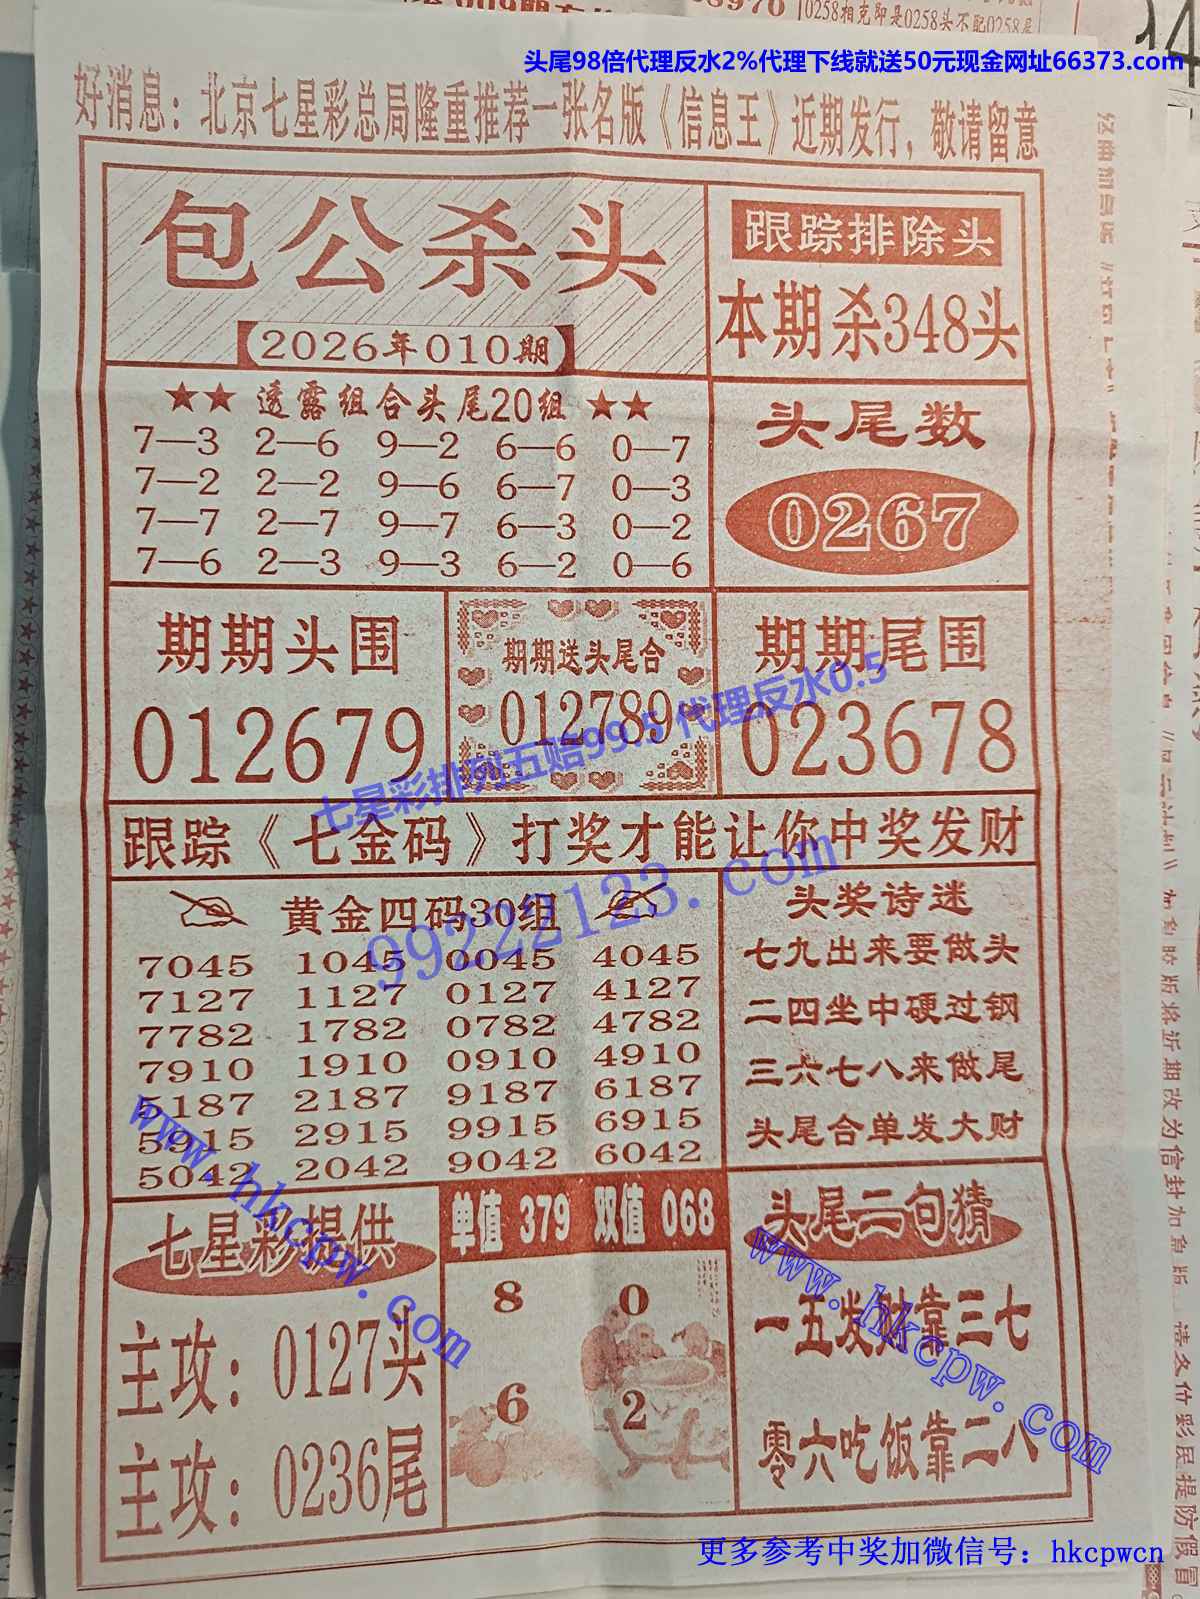 0258相克即是0258头不配0258尾
头尾98倍代理反水2%代理下线就送50元现金网址66373.com
好消息：北京七星彩总局隆重推荐一张名版《信息王》近期发行，敬请留意
包公杀头
2026年010期
跟踪排除头
本期杀348头
★★透露组合头尾20组★★
7—3 2—6 9—2 6—6 0—7
7—2 2—2 9—6 6—7 0—3
7—7 2—7 9—7 6—3 0—2
7—6 2—3 9—3 6—2 0—6
头尾数
0267
期期头围
012679
期期送头尾合
012789
期期尾围
023678
七星彩排列五赔99.5 代理反水0.5
跟踪《七金码》打奖才能让你中奖发财
99222123.com
黄金四码30组
7045 1045 0045 4045
7127 1127 0127 4127
7782 1782 0782 4782
7910 1910 0910 4910
5187 2187 9187 6187
5915 2915 9915 6915
5042 2042 9042 6042
头奖诗迷
七九出来要做头
二四坐中硬过钢
三六七八来做尾
头尾合单发大财
www.hkcpw.com
七星彩提供
主攻：0127头
主攻：0236尾
单值 379 双值 068
8 0
6 2
头尾二句猜
一五发财靠三七
零六吃饭靠二八
www.hkcpw.com
更多参考中奖加微信号：hkcpwcn